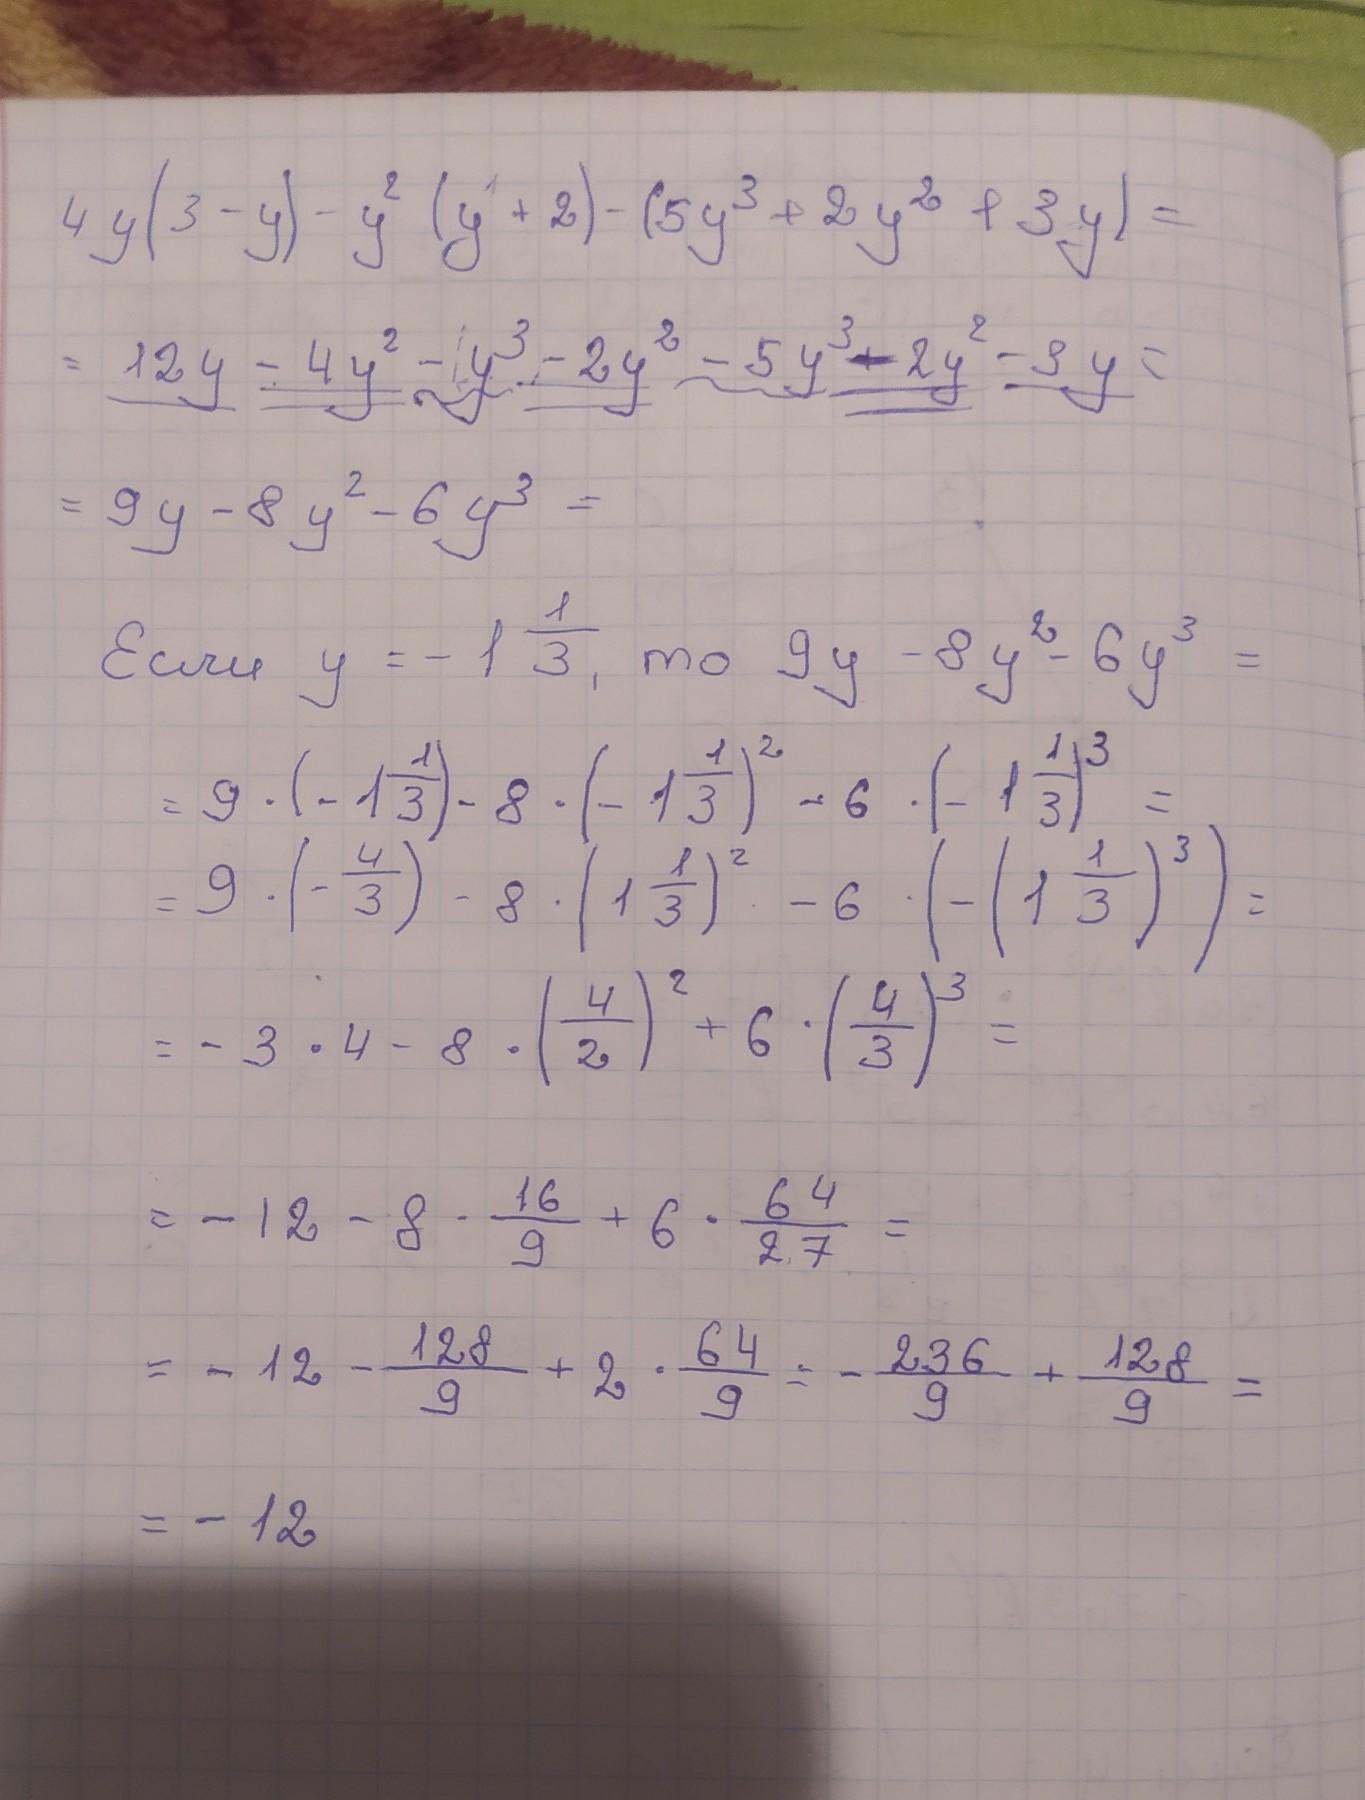 4y(3-y)-y²(y+2)-(5y³+2y²+3y)=
= 12y-4y²-y³-2y²-5y³-2y²-3y=
= 9y-8y²-6y³=
Если y=-1 1/3, то 9y-8y²-6y³=
= 9·(-1 1/3)-8·(-1 1/3)²-6·(-1 1/3)³=
= 9·(-4/3)-8·(1 1/3)²-6·(-(1 1/3)³)=
= -3·4-8·(4/2)²+6·(4/3)³=
= -12-8·16/9+6·64/27=
= -12-128/9+2·64/9=-236/9+128/9=
= -12